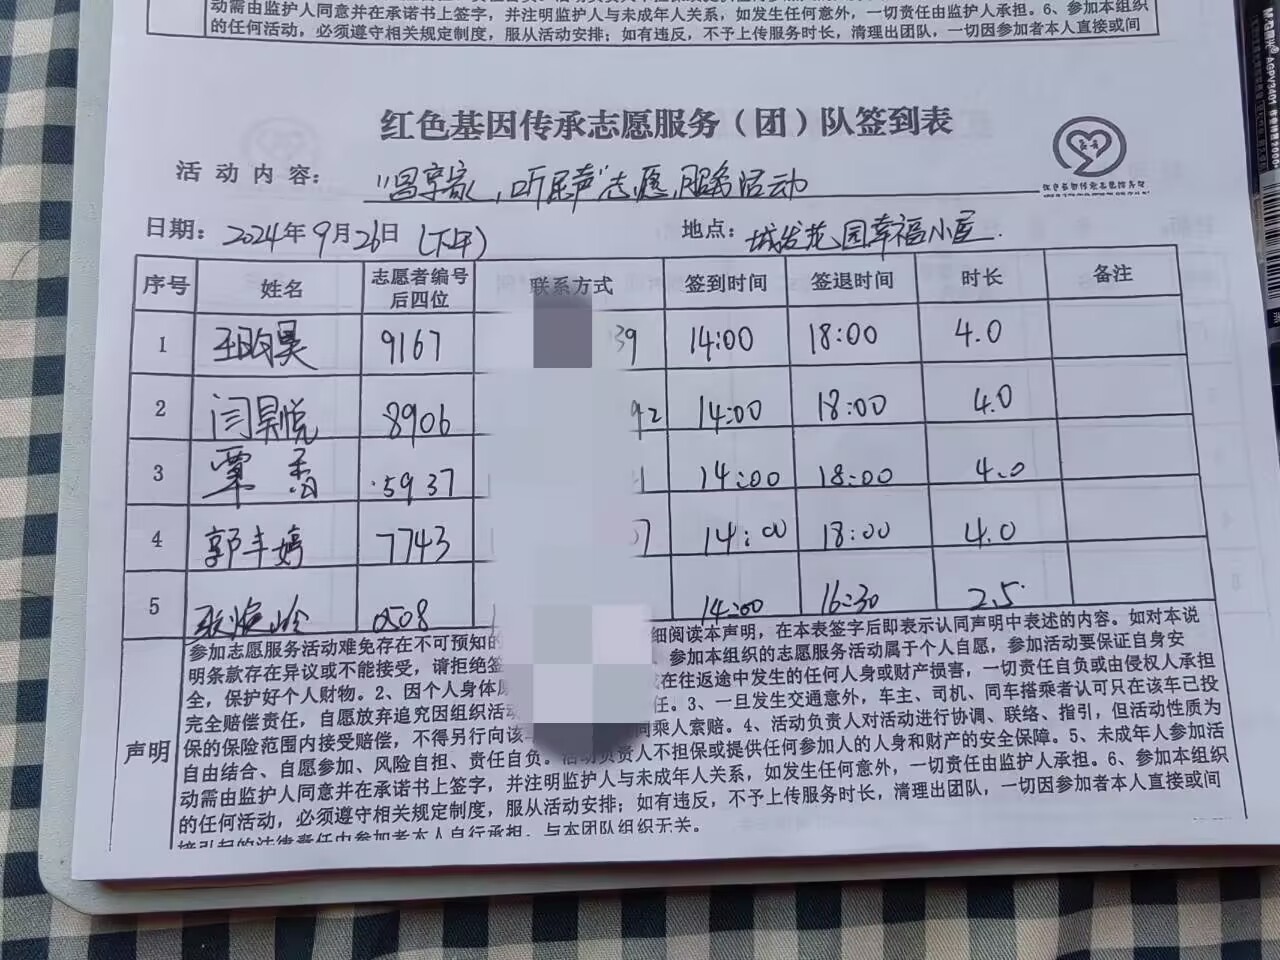 动需由监护人同意并在承诺书上签字，并注明监护人与未成年人关系，如发生任何意外，一切责任由监护人承担。6、参加本组织
的任何活动，必须遵守相关规定制度，服从活动安排；如有违反，不予上传服务时长，清理出团队，一切因参加者本人直接或间
红色基因传承志愿服务（团）队签到表
活动内容： 志愿服务活动
日期：2024年9月26日（下午） 地点：城发花园幸福小屋
序号 姓名 志愿者编号后四位 联系方式 签到时间 签退时间 时长 备注
1 9167 39 14:00 18:00 4.0
2 闫昊悦 8906 92 14:00 18:00 4.0
3 覃香 5937 1 14:00 18:00 4.0
4 郭丰婷 7743 07 14:00 18:00 4.0
5 0508 14:00 16:30 2.5
声明
参加志愿服务活动难免存在不可预知的 细阅读本声明，在本表签字后即表示认同声明中表述的内容。如对本说
明条款存在异议或不能接受，请拒绝签 、参加本组织的志愿服务活动属于个人自愿，参加活动要保证自身安
全，保护好个人财物。2、因个人身体 在往返途中发生的任何人身或财产损害，一切责任自负或由侵权人承担
完全赔偿责任，自愿放弃追究因组织活动 任。3、一旦发生交通意外，车主、司机、同车搭乘者认可只在该车已投
保的保险范围内接受赔偿，不得另行向该 同乘人索赔。4、活动负责人对活动进行协调、联络、指引，但活动性质为
自由结合、自愿参加、风险自担、责任自负。活动负责人不担保或提供任何参加人的人身和财产的安全保障。5、未成年人参加活
动需由监护人同意并在承诺书上签字，并注明监护人与未成年人关系，如发生任何意外，一切责任由监护人承担。6、参加本组织
的任何活动，必须遵守相关规定制度，服从活动安排；如有违反，不予上传服务时长，清理出团队，一切因参加者本人直接或间
接引起的法律责任由参加者本人自行承担，与本团队组织无关。